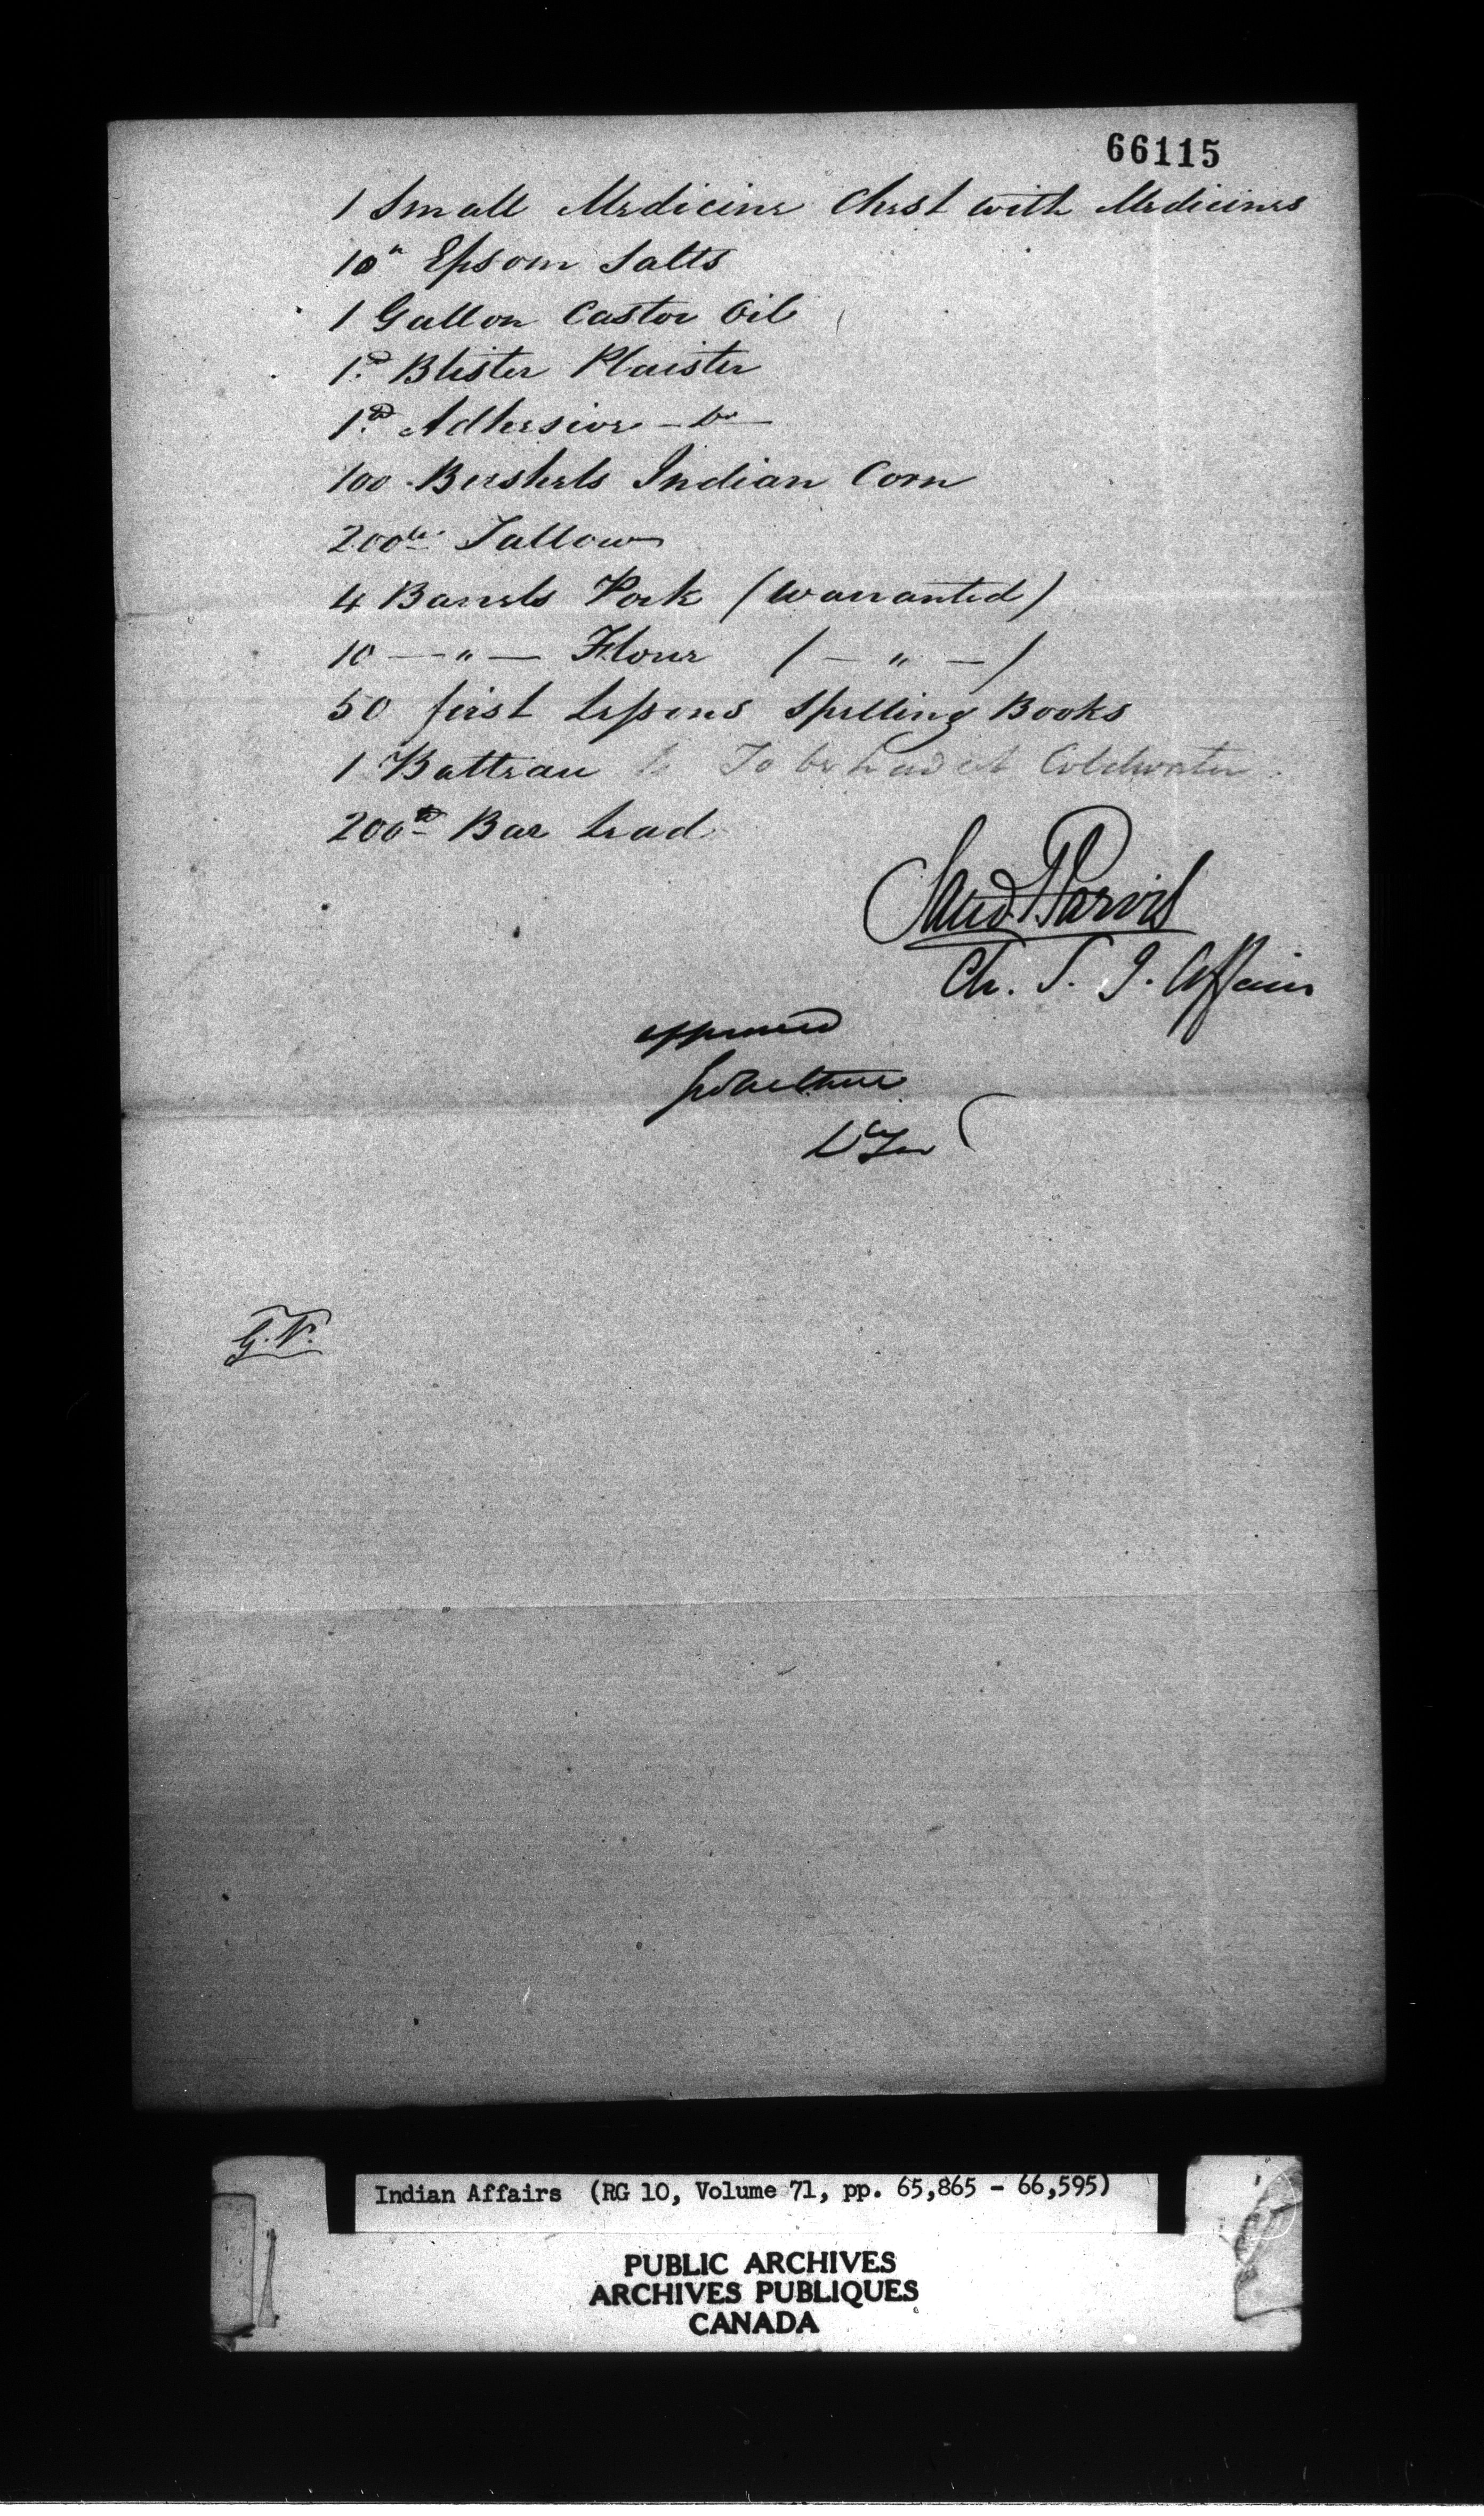 66115
1 Small Medicine Chest with Medicines
10 " Epsom Salts
1 Gallon Castor Oil
1 lb Blister Plaister
1 lb Adhesive - Do -
100 Bushels Indian Corn
200 lb Tallow
4 Barrels Pork (Warranted)
10 — " — Flour ( — " — )
50 first Lessons Spelling Books
1 Batteau To be had at Coldwater
200 lb Bar Lead
Saml P Jarvis
Ch. S. I. Affairs
approved
G.N.
Indian Affairs (RG 10, Volume 71, pp. 65,865 - 66,595)
PUBLIC ARCHIVES
ARCHIVES PUBLIQUES
CANADA